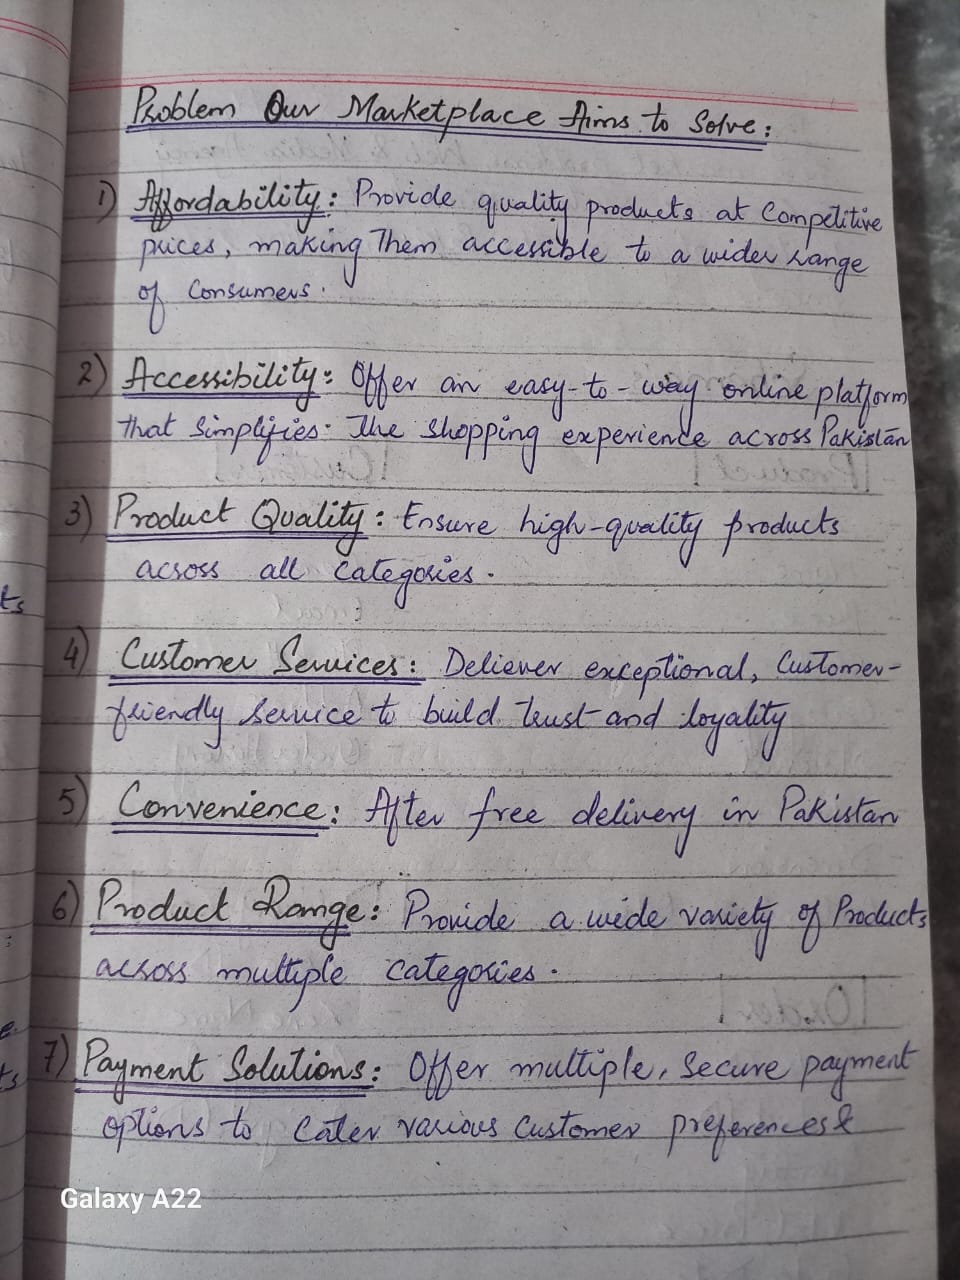 Problem Our Marketplace Aims to Solve:
1) Affordability: Provide quality products at Competitive
prices, making Them accessible to a wider range
of Consumers.
2) Accessibility: Offer an easy-to-way online platform
that Simplifies. The shopping experience across Pakistan
3) Product Quality: Ensure high-quality products
across all Categories.
ts
4) Customer Services: Deliever exceptional, Customer-
friendly Service to build trust and loyality
5) Convenience: After free delivery in Pakistan
6) Product Range: Provide a wide variety of Products
across multiple Categories.
e
ts
7) Payment Solutions: Offer multiple, Secure payment
options to Cater various Customer preferences &
Galaxy A22